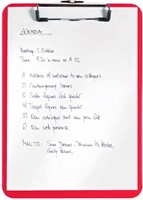 AGENDA
Meeting: 1 October
Time: 9.30 in room
1) Address of welcome to new colleagues
2) Contemporary issues
3) Sales figures last quarter
4) Target figures new quarter
5) New catalogue and new price list
6) New web presence
MAIL TO: